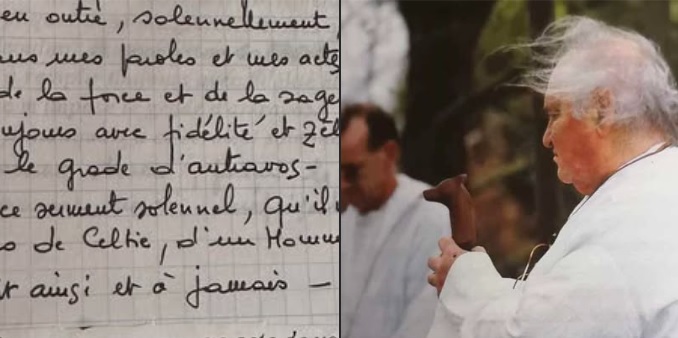 en outre, solennellement,
mes paroles et mes actes
de la force et de la sage
avec fidélité et zèl
le grade d'antravos-
ce serment solennel, qu'il
de Celtie, d'un Homm
ainsi et à jamais -